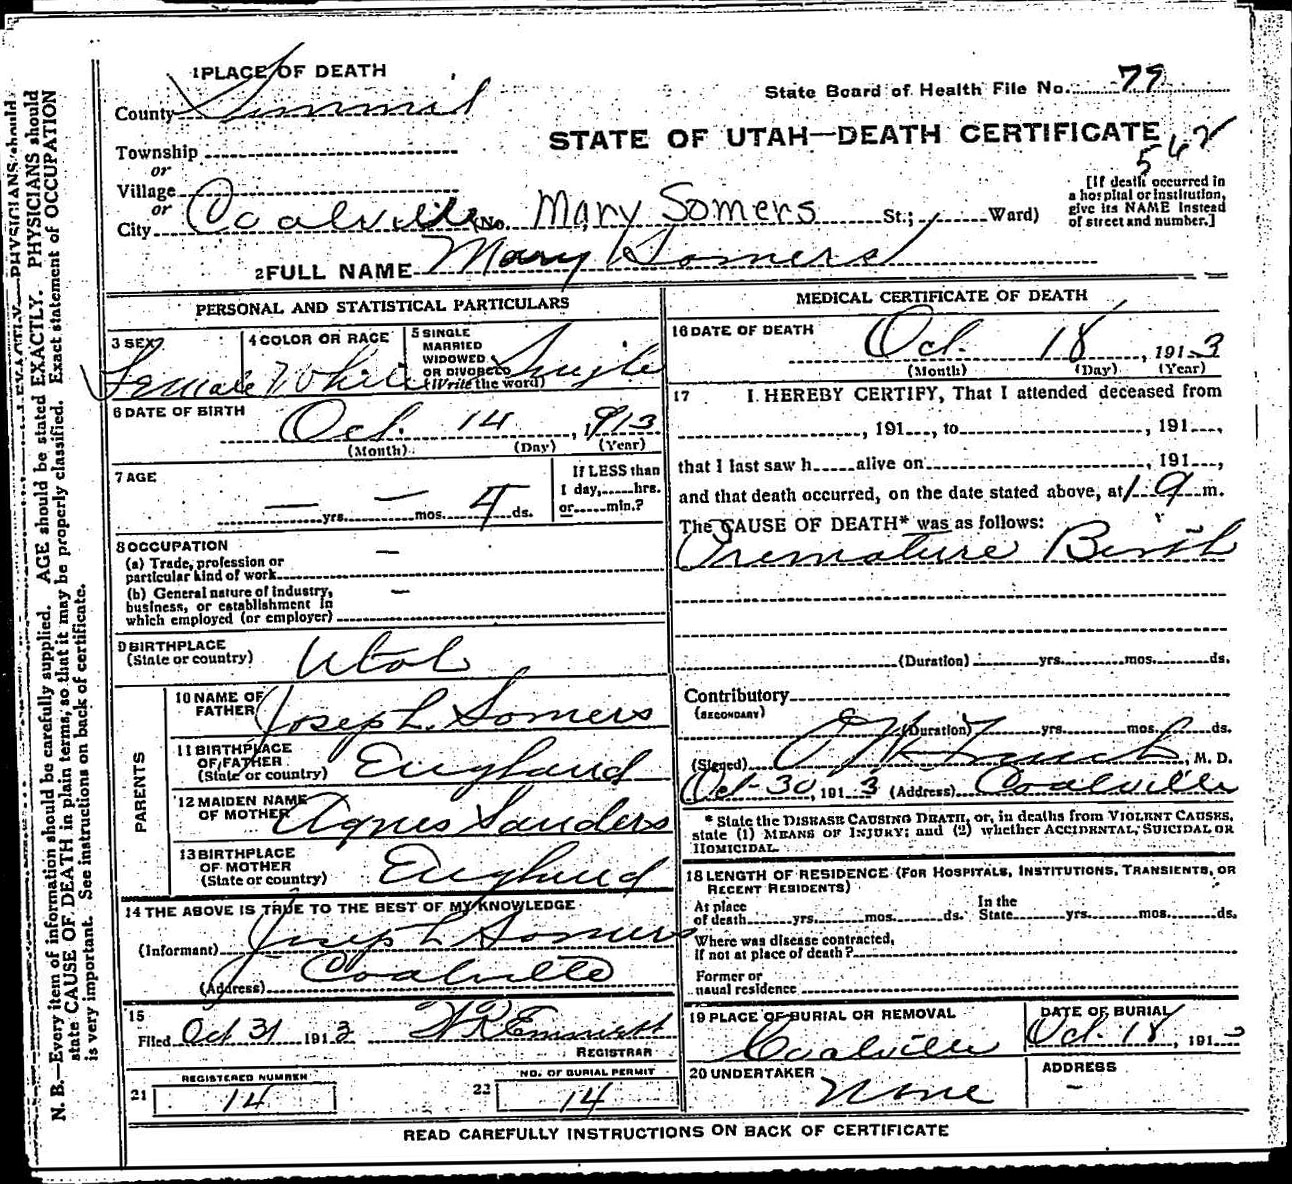 1 PLACE OF DEATH
County Summit
State Board of Health File No. 79
STATE OF UTAH—DEATH CERTIFICATE
562
Township
or
Village
or
City Coalville No. Mary Somers St.; Ward)
[If death occurred in
a hospital or institution,
give its NAME instead
of street and number.]
2 FULL NAME Mary Somers
PERSONAL AND STATISTICAL PARTICULARS
3 SEX Female
4 COLOR OR RACE White
5 SINGLE
MARRIED
WIDOWED
OR DIVORCED
(Write the word) Single
6 DATE OF BIRTH
Oct. 14, 1913
(Month) (Day) (Year)
7 AGE
— yrs. — mos. 4 ds.
If LESS than
1 day, hrs.
or min.?
8 OCCUPATION
(a) Trade, profession or
particular kind of work —
(b) General nature of industry,
business, or establishment in
which employed (or employer) —
9 BIRTHPLACE
(State or country) Utah
PARENTS
10 NAME OF
FATHER Joseph Somers
11 BIRTHPLACE
OF FATHER
(State or country) England
12 MAIDEN NAME
OF MOTHER Agnes Sanders
13 BIRTHPLACE
OF MOTHER
(State or country) England
14 THE ABOVE IS TRUE TO THE BEST OF MY KNOWLEDGE
(Informant) Joseph Somers
(Address) Coalville
15
Filed Oct 31 1913
REGISTRAR
REGISTERED NUMBER
21 14
NO. OF BURIAL PERMIT
22 14
MEDICAL CERTIFICATE OF DEATH
16 DATE OF DEATH
Oct. 18, 1913
(Month) (Day) (Year)
17 I HEREBY CERTIFY, That I attended deceased from
, 191 , to , 191 ,
that I last saw h alive on , 191 ,
and that death occurred, on the date stated above, at m.
The CAUSE OF DEATH* was as follows:
Premature Birth
(Duration) yrs. mos. ds.
Contributory
(SECONDARY)
(Duration) yrs. mos. ds.
(Signed) , M. D.
Oct-30, 1913 (Address) Coalville
* State the DISEASE CAUSING DEATH, or, in deaths from VIOLENT CAUSES,
state (1) MEANS OF INJURY; and (2) whether ACCIDENTAL, SUICIDAL OR
HOMICIDAL.
18 LENGTH OF RESIDENCE (FOR HOSPITALS, INSTITUTIONS, TRANSIENTS, OR
RECENT RESIDENTS)
At place
of death yrs. mos. ds.
In the
State yrs. mos. ds.
Where was disease contracted,
if not at place of death?
Former or
usual residence
19 PLACE OF BURIAL OR REMOVAL
Coalville
DATE OF BURIAL
Oct. 18, 1913
20 UNDERTAKER
None
ADDRESS
—
READ CAREFULLY INSTRUCTIONS ON BACK OF CERTIFICATE
N. B.—Every item of information should be carefully supplied. AGE should be stated EXACTLY. PHYSICIANS should
state CAUSE OF DEATH in plain terms, so that it may be properly classified. Exact statement of OCCUPATION
is very important. See instructions on back of certificate.